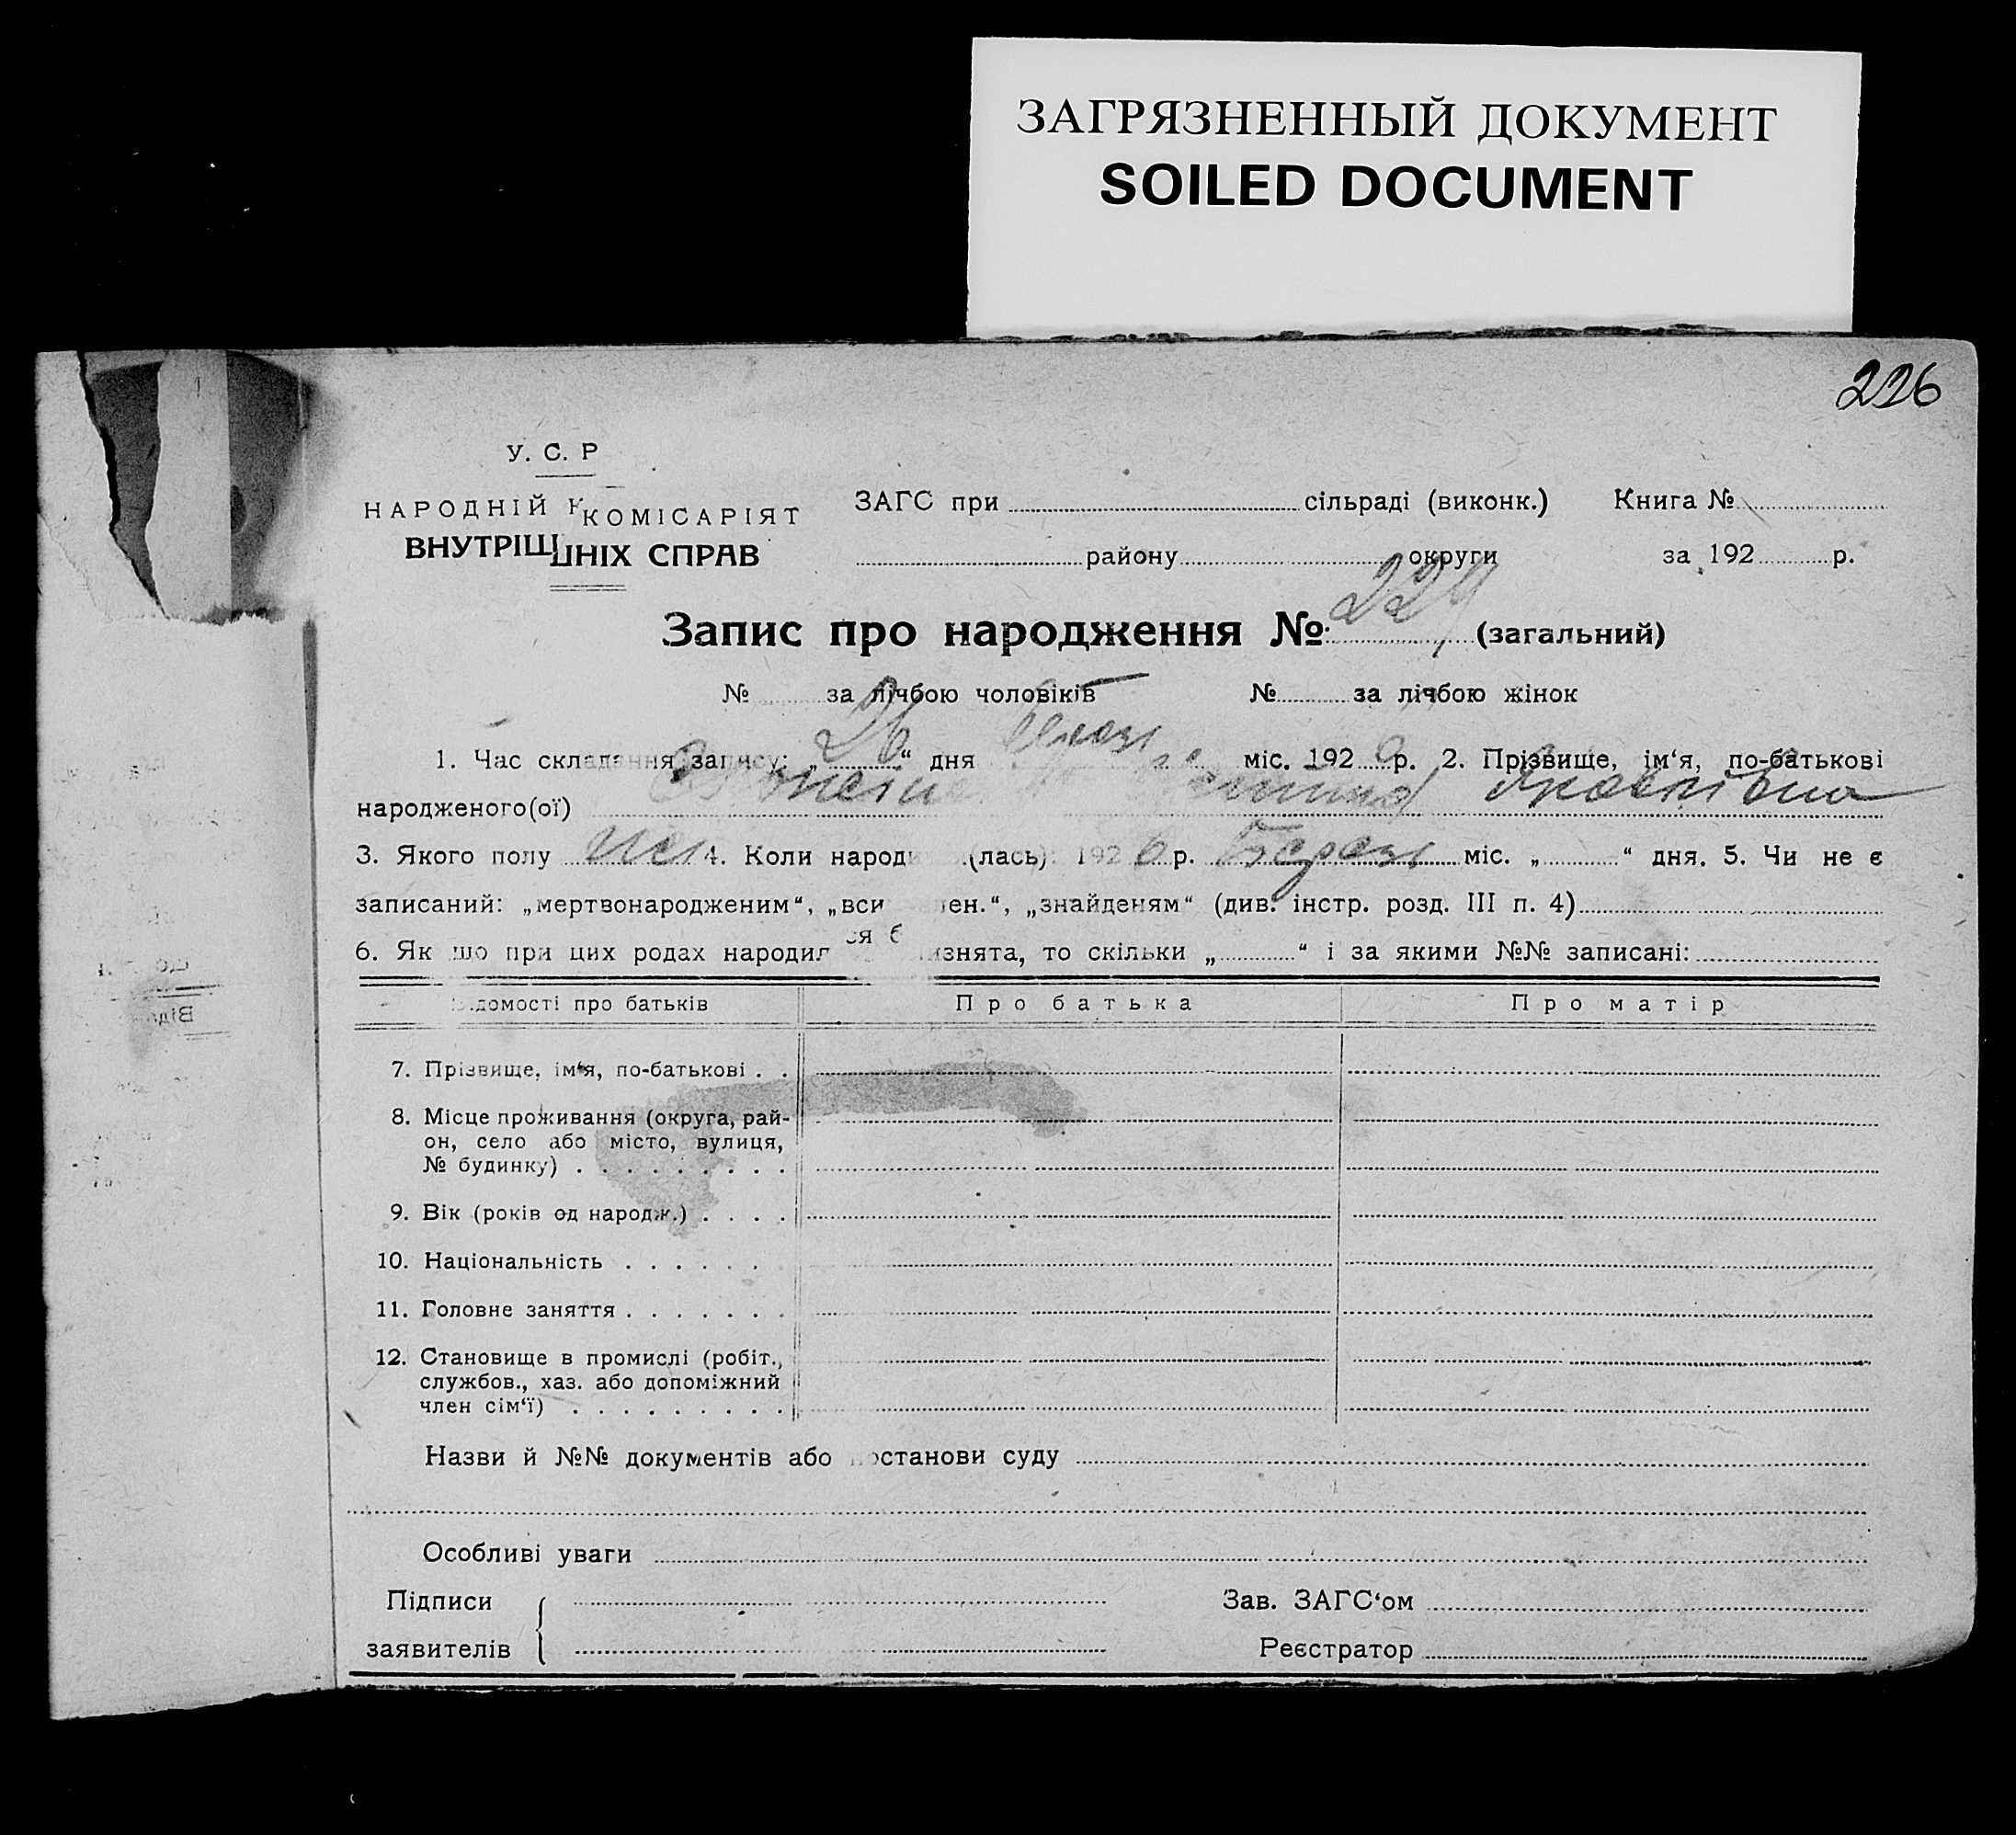 ЗАГРЯЗНЕННЫЙ ДОКУМЕНТ
SOILED DOCUMENT
226
У. С. Р
НАРОДНІЙ КОМІСАРІЯТ
ВНУТРІШНІХ СПРАВ
ЗАГС при сільраді (виконк.) Книга №
району округи за 192 р.
Запис про народження № 229 (загальний)
№ за лічбою чоловіків № за лічбою жінок
1. Час складання запису: „26“ дня міс. 192 р. 2. Прізвище, ім‘я, по-батькові
народженого(ої) Яковлівна
3. Якого полу жін 4. Коли народи (лась): 1926 р. міс. „ “ дня. 5. Чи не є
записаний: „мертвонародженим“, „вси ен.“, „знайденям“ (див. інстр. розд. III п. 4)
6. Як що при цих родах народилося изнята, то скільки „ “ і за якими №№ записані:
домості про батьків Про батька Про матір
7. Прізвище, ім‘я, по-батькові . .
8. Місце проживання (округа, рай-
он, село або місто, вулиця,
№ будинку) . . . . . . . . .
9. Вік (років од народж.) . . . .
10. Національність . . . . . .
11. Головне заняття . . . . . . .
12. Становище в промислі (робіт.,
службов., хаз. або допоміжний
член сім‘ї) . . . . . . . . .
Назви й №№ документів або постанови суду
Особливі уваги
Підписи
заявителів
Зав. ЗАГС‘ом
Реєстратор